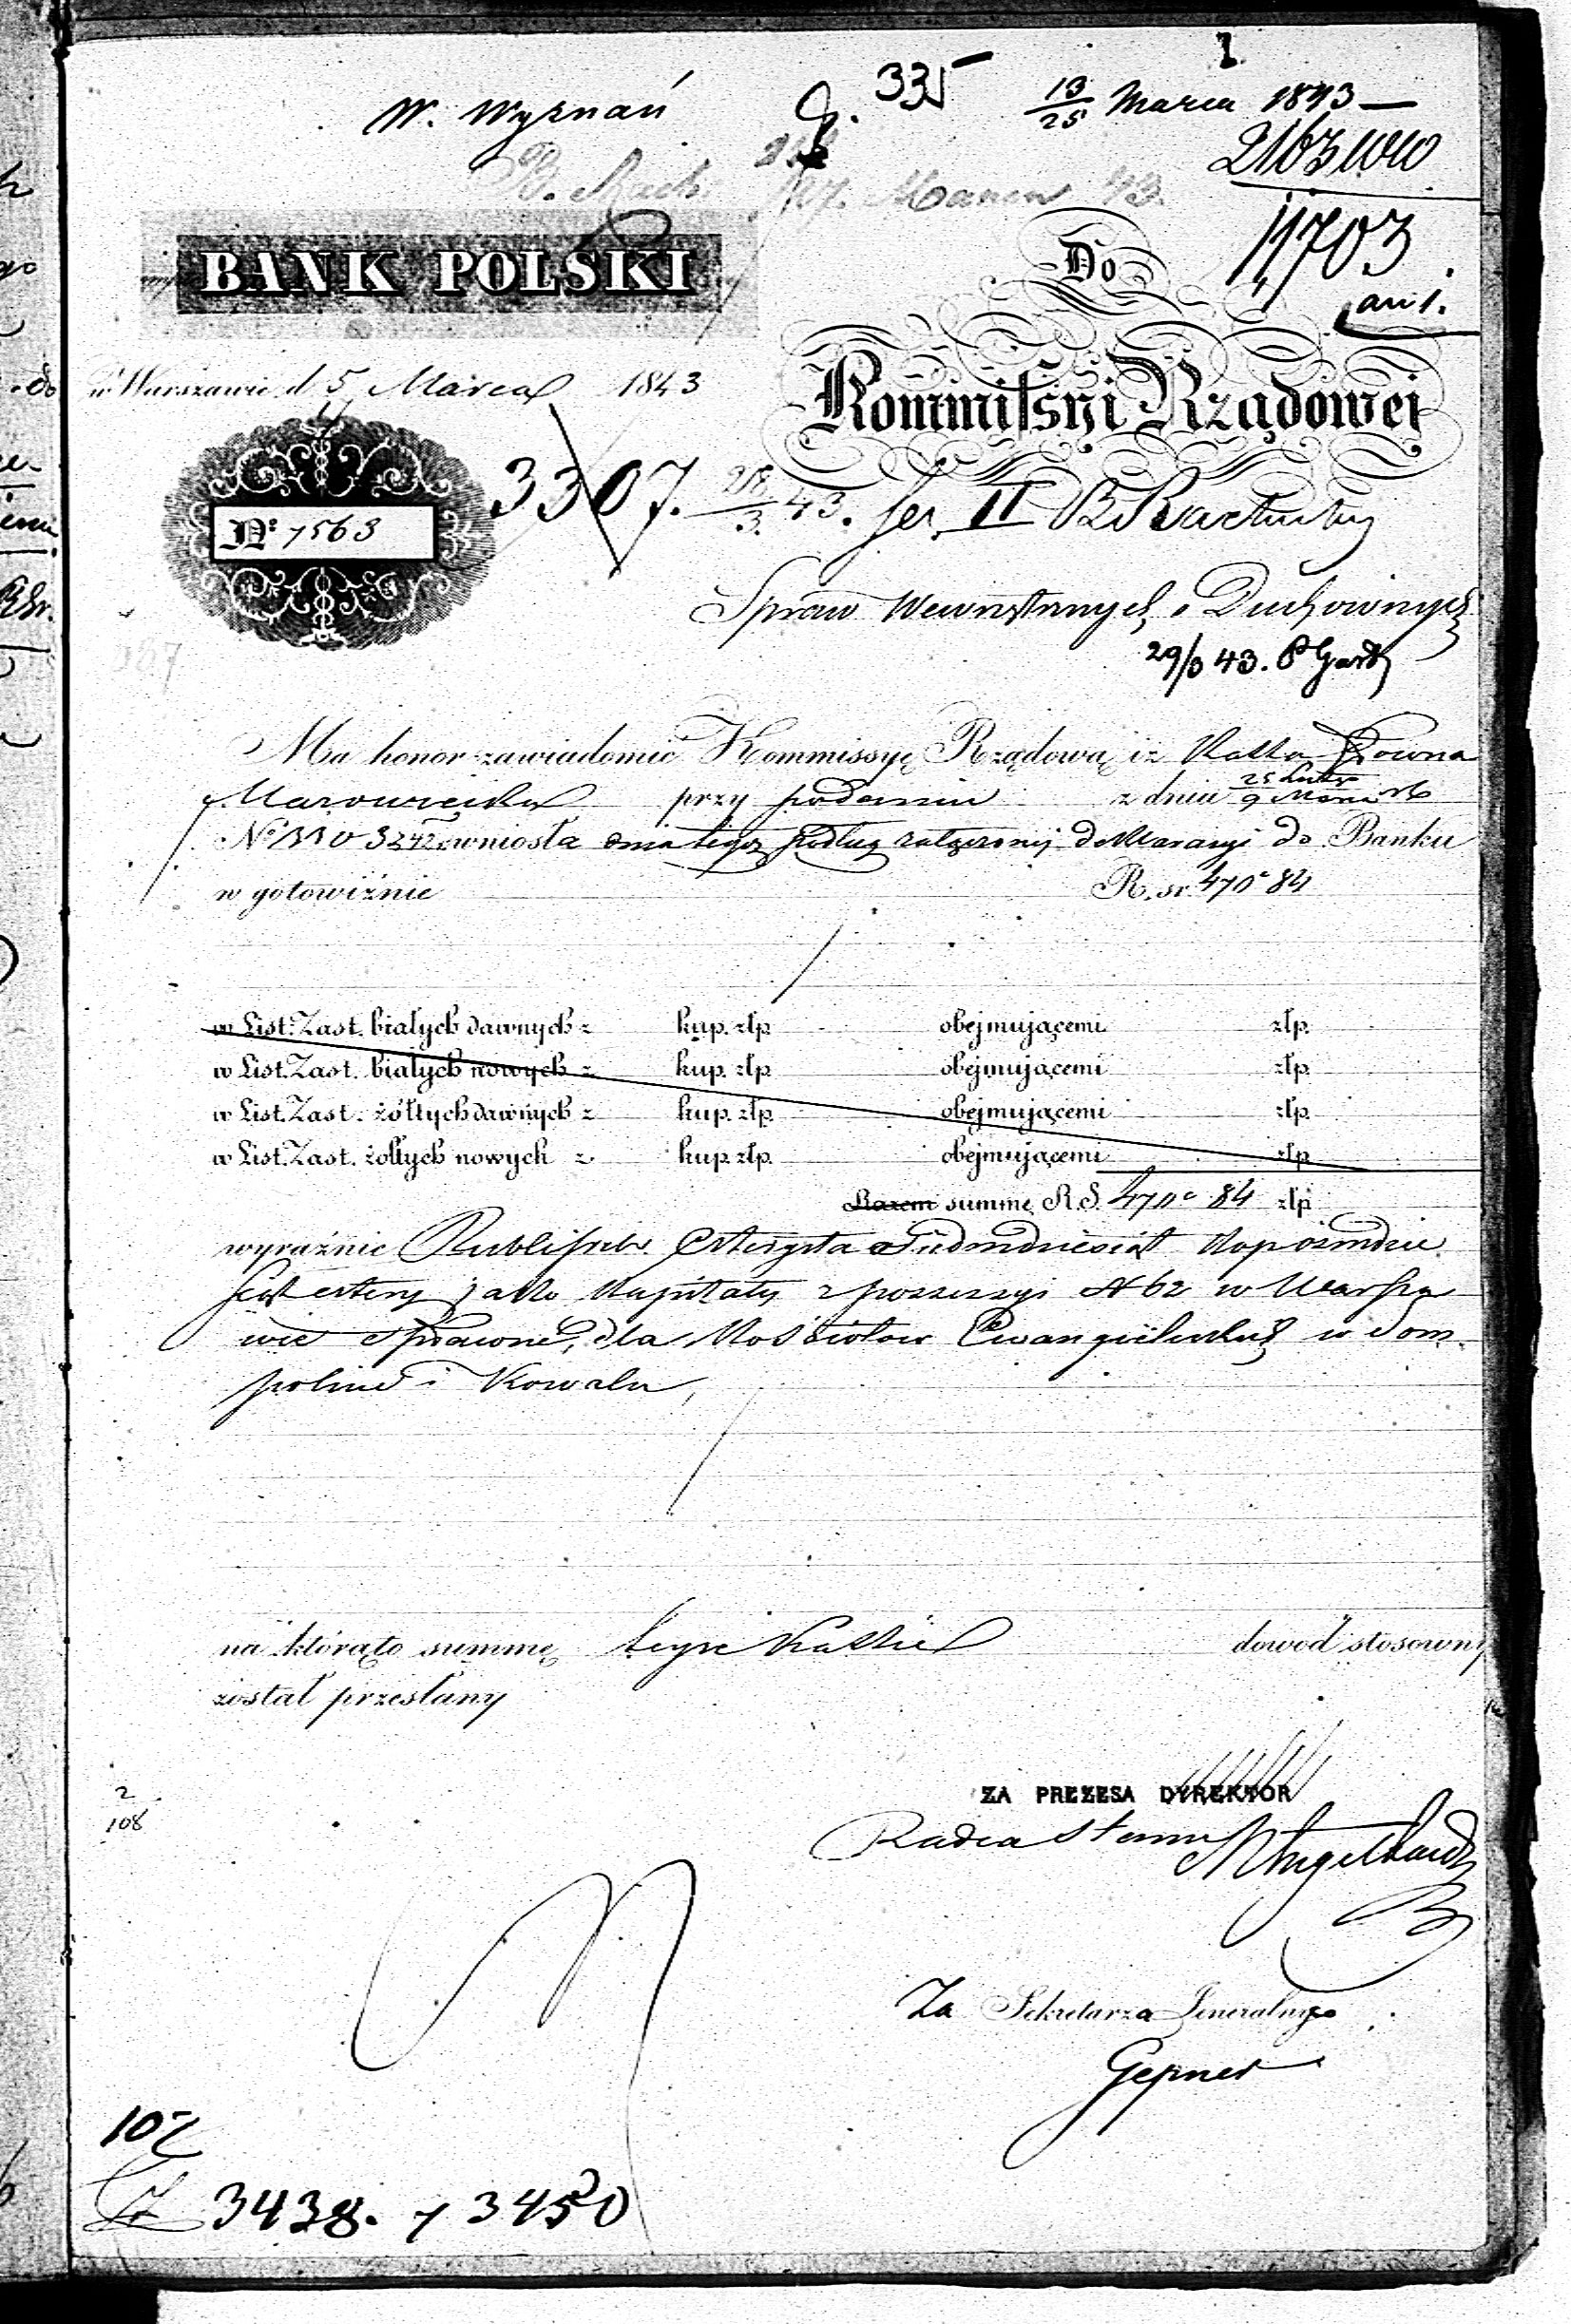 1.
W. Wyznań
335
13/25 Marca 1843
2163
B. Rach. Marca 43.
11703
an 1.
BANK POLSKI
Do
w Warszawie d 5 Marca 1843
Kommissyi Rządowei
3307. 28/3. 43.
II
Nº 7563
Spraw Wewnętrznych i Duchownych
29/3 43.
Ma honor zawiadomić Kommissyę Rządową iż Kassa Główna
Mazowiecka przy podaniu z dnia 25 Lutego / 9 Marca rb
wniosła dnia tegoż podług załączonej deklaracyi do Banku
w gotowiźnie R. sr. 470 c 84
w List. Zast. białych dawnych z kup. złp. obejmującemi złp.
w List. Zast. białych nowych z kup. złp. obejmującemi złp.
w List. Zast. żółtych dawnych z kup. złp. obejmującemi złp.
w List. Zast. żółtych nowych z kup. złp. obejmującemi złp.
Razem summę R.S. 470 c 84 złp
wyraźnie Rubli sreb. Czterysta Siedmdziesiąt kop ośmdzie
siąt cztery jako kapitały z possessyi N 62 w Warsza
wie spławione, dla Kościołów Ewangielickich w Dom
polinie i Kowalu,
na którąto summę tejże Kassie dowód stosowny
został przesłany
2
108
ZA PREZESA DYREKTOR
Radca Stanu Engelhardt
Za Sekretarza Jeneralnego
Gepner
107
3438. 3450